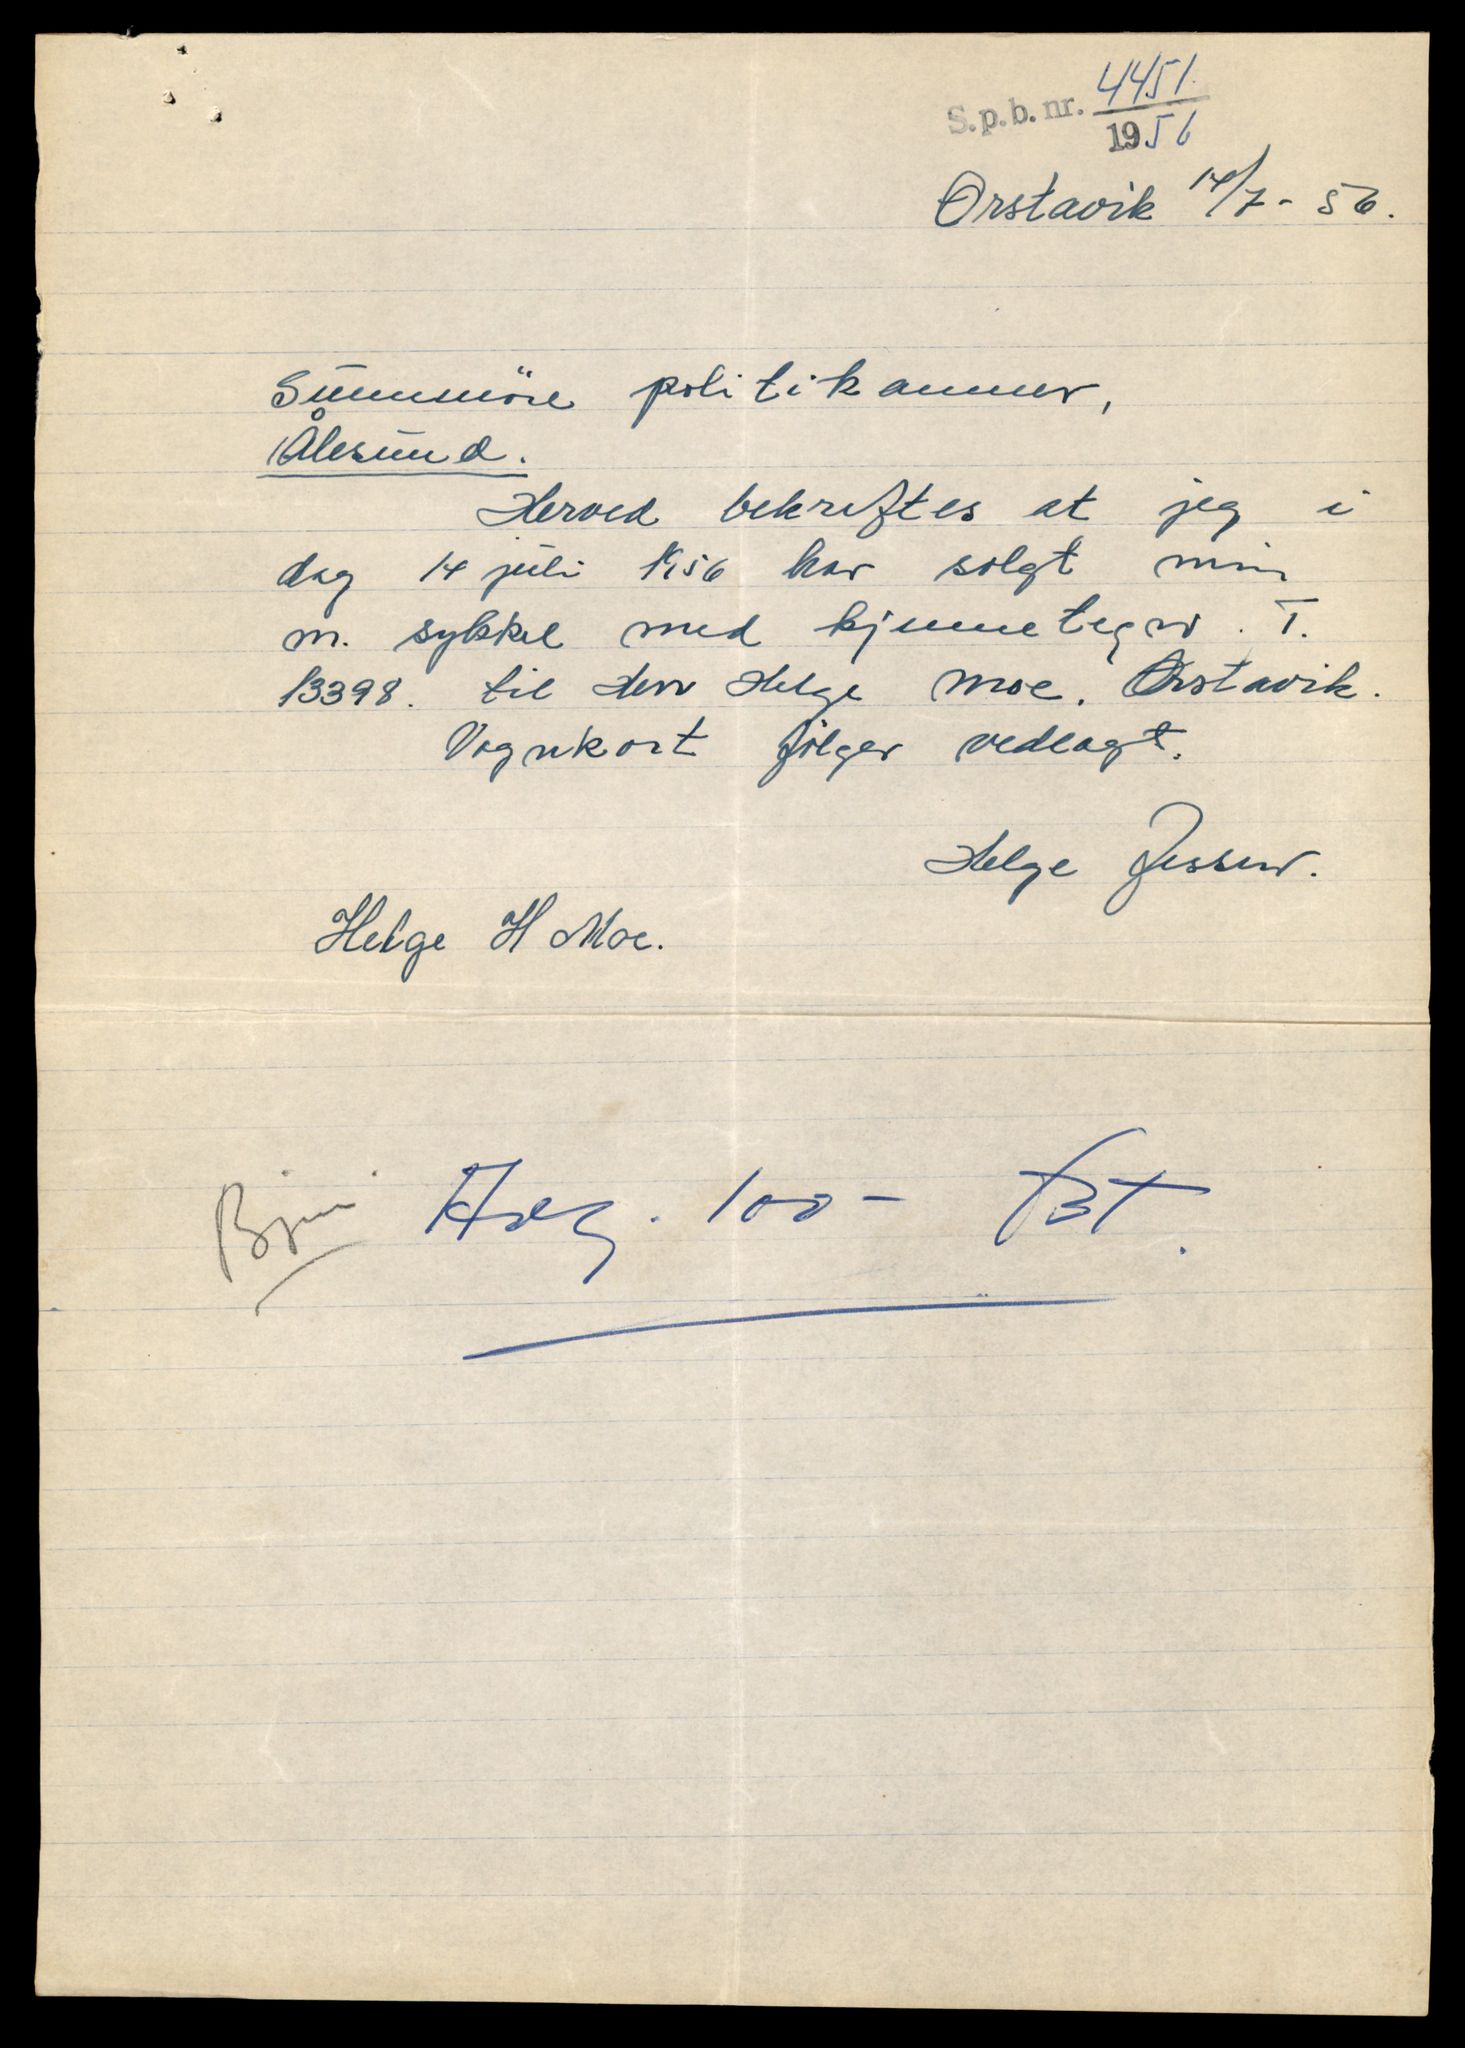 S.p.b. nr. 4451
1956
Ørstavik 14/7 - 56.
Sunnmöre politikammer,
Ålesund.
Herved bekreftes at jeg i
dag 14 juli 1956 har solgt min
m. sykkel med kjennetegn. T.
13398. til Herr Helge Moe. Ørstavik.
Vognkort følger vedlagt.
Helge Jessen.
Helge H Moe.
100 -